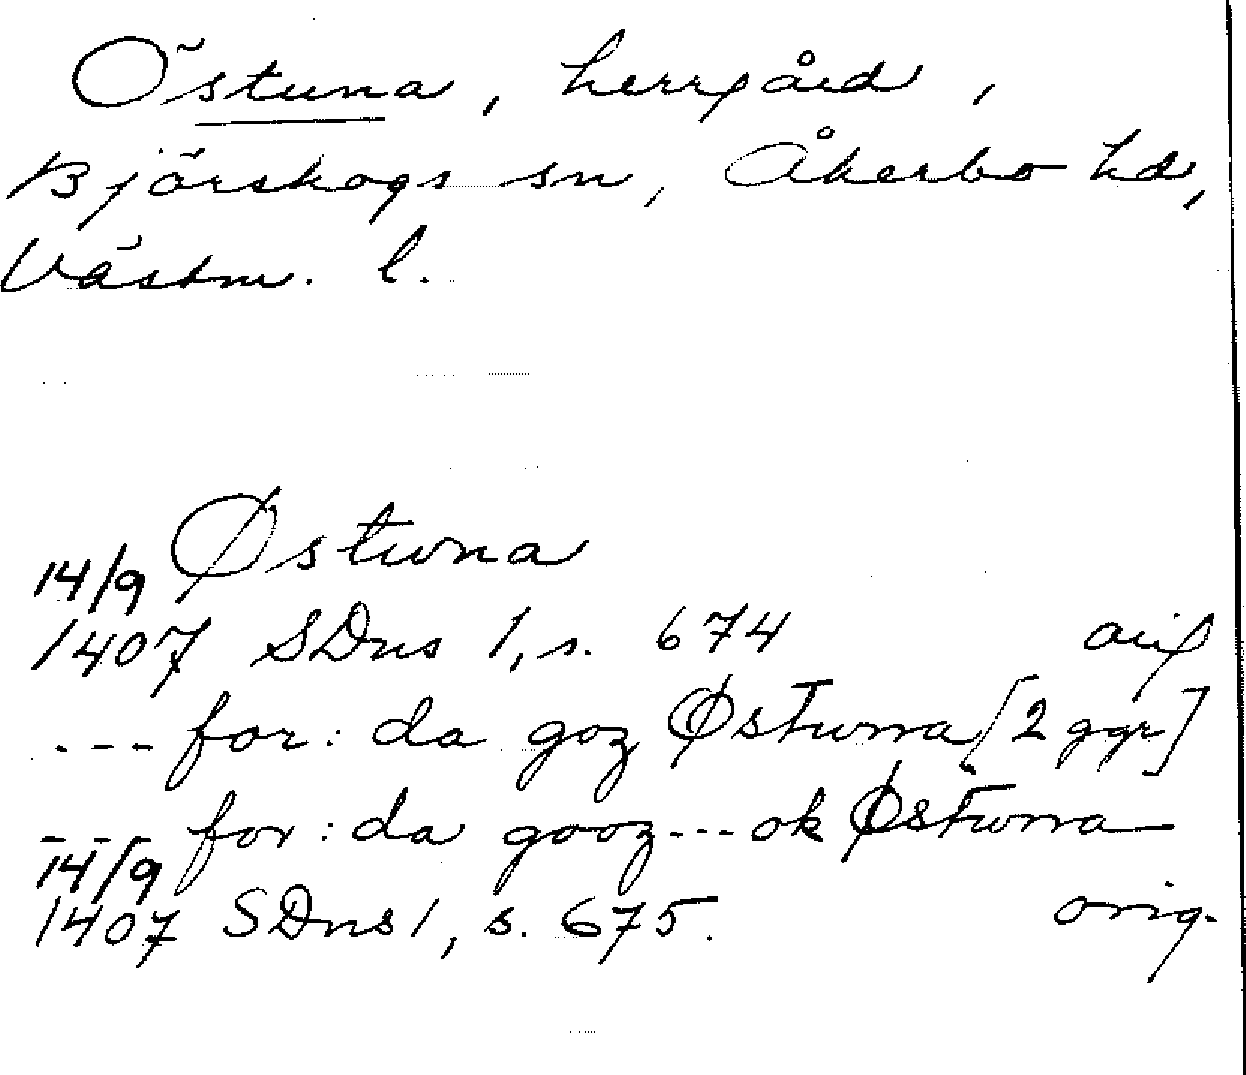 Östuna, herrgård,
Björskogs sn, Åkerbo hd,
Västm. l.
Østwna
14/9
1407 SDns 1, s. 674 orig
--- for: da goz Østwna [2 ggr]
--- for: da gooz --- ok Østwna
14/9
1407 SDns 1, s. 675. orig.